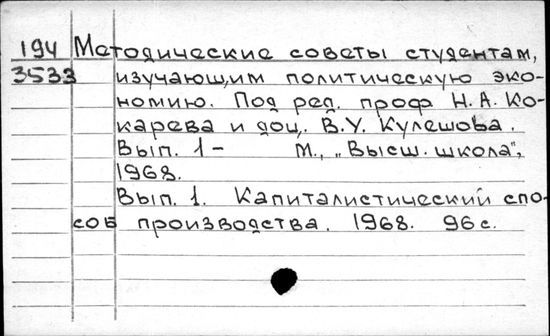 194 Методические советы студентам,
3533 изучающим политическую эко-
номию. Под ред. проф. Н.А. Ко-
карева и доц. В.У. Кулешова.
Вып. 1- М., „Высш. школа",
1968.
Вып. 1. Капиталистический спо-
соб производства. 1968. 96 с.